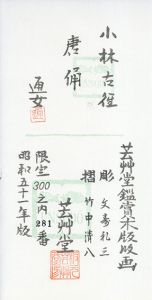 芸艸堂鑑賞木版版画
小林古径
唐俑
通女
彫 文寿礼三
摺 竹中清八
芸艸堂
限定300之内281番
昭和五十一年版